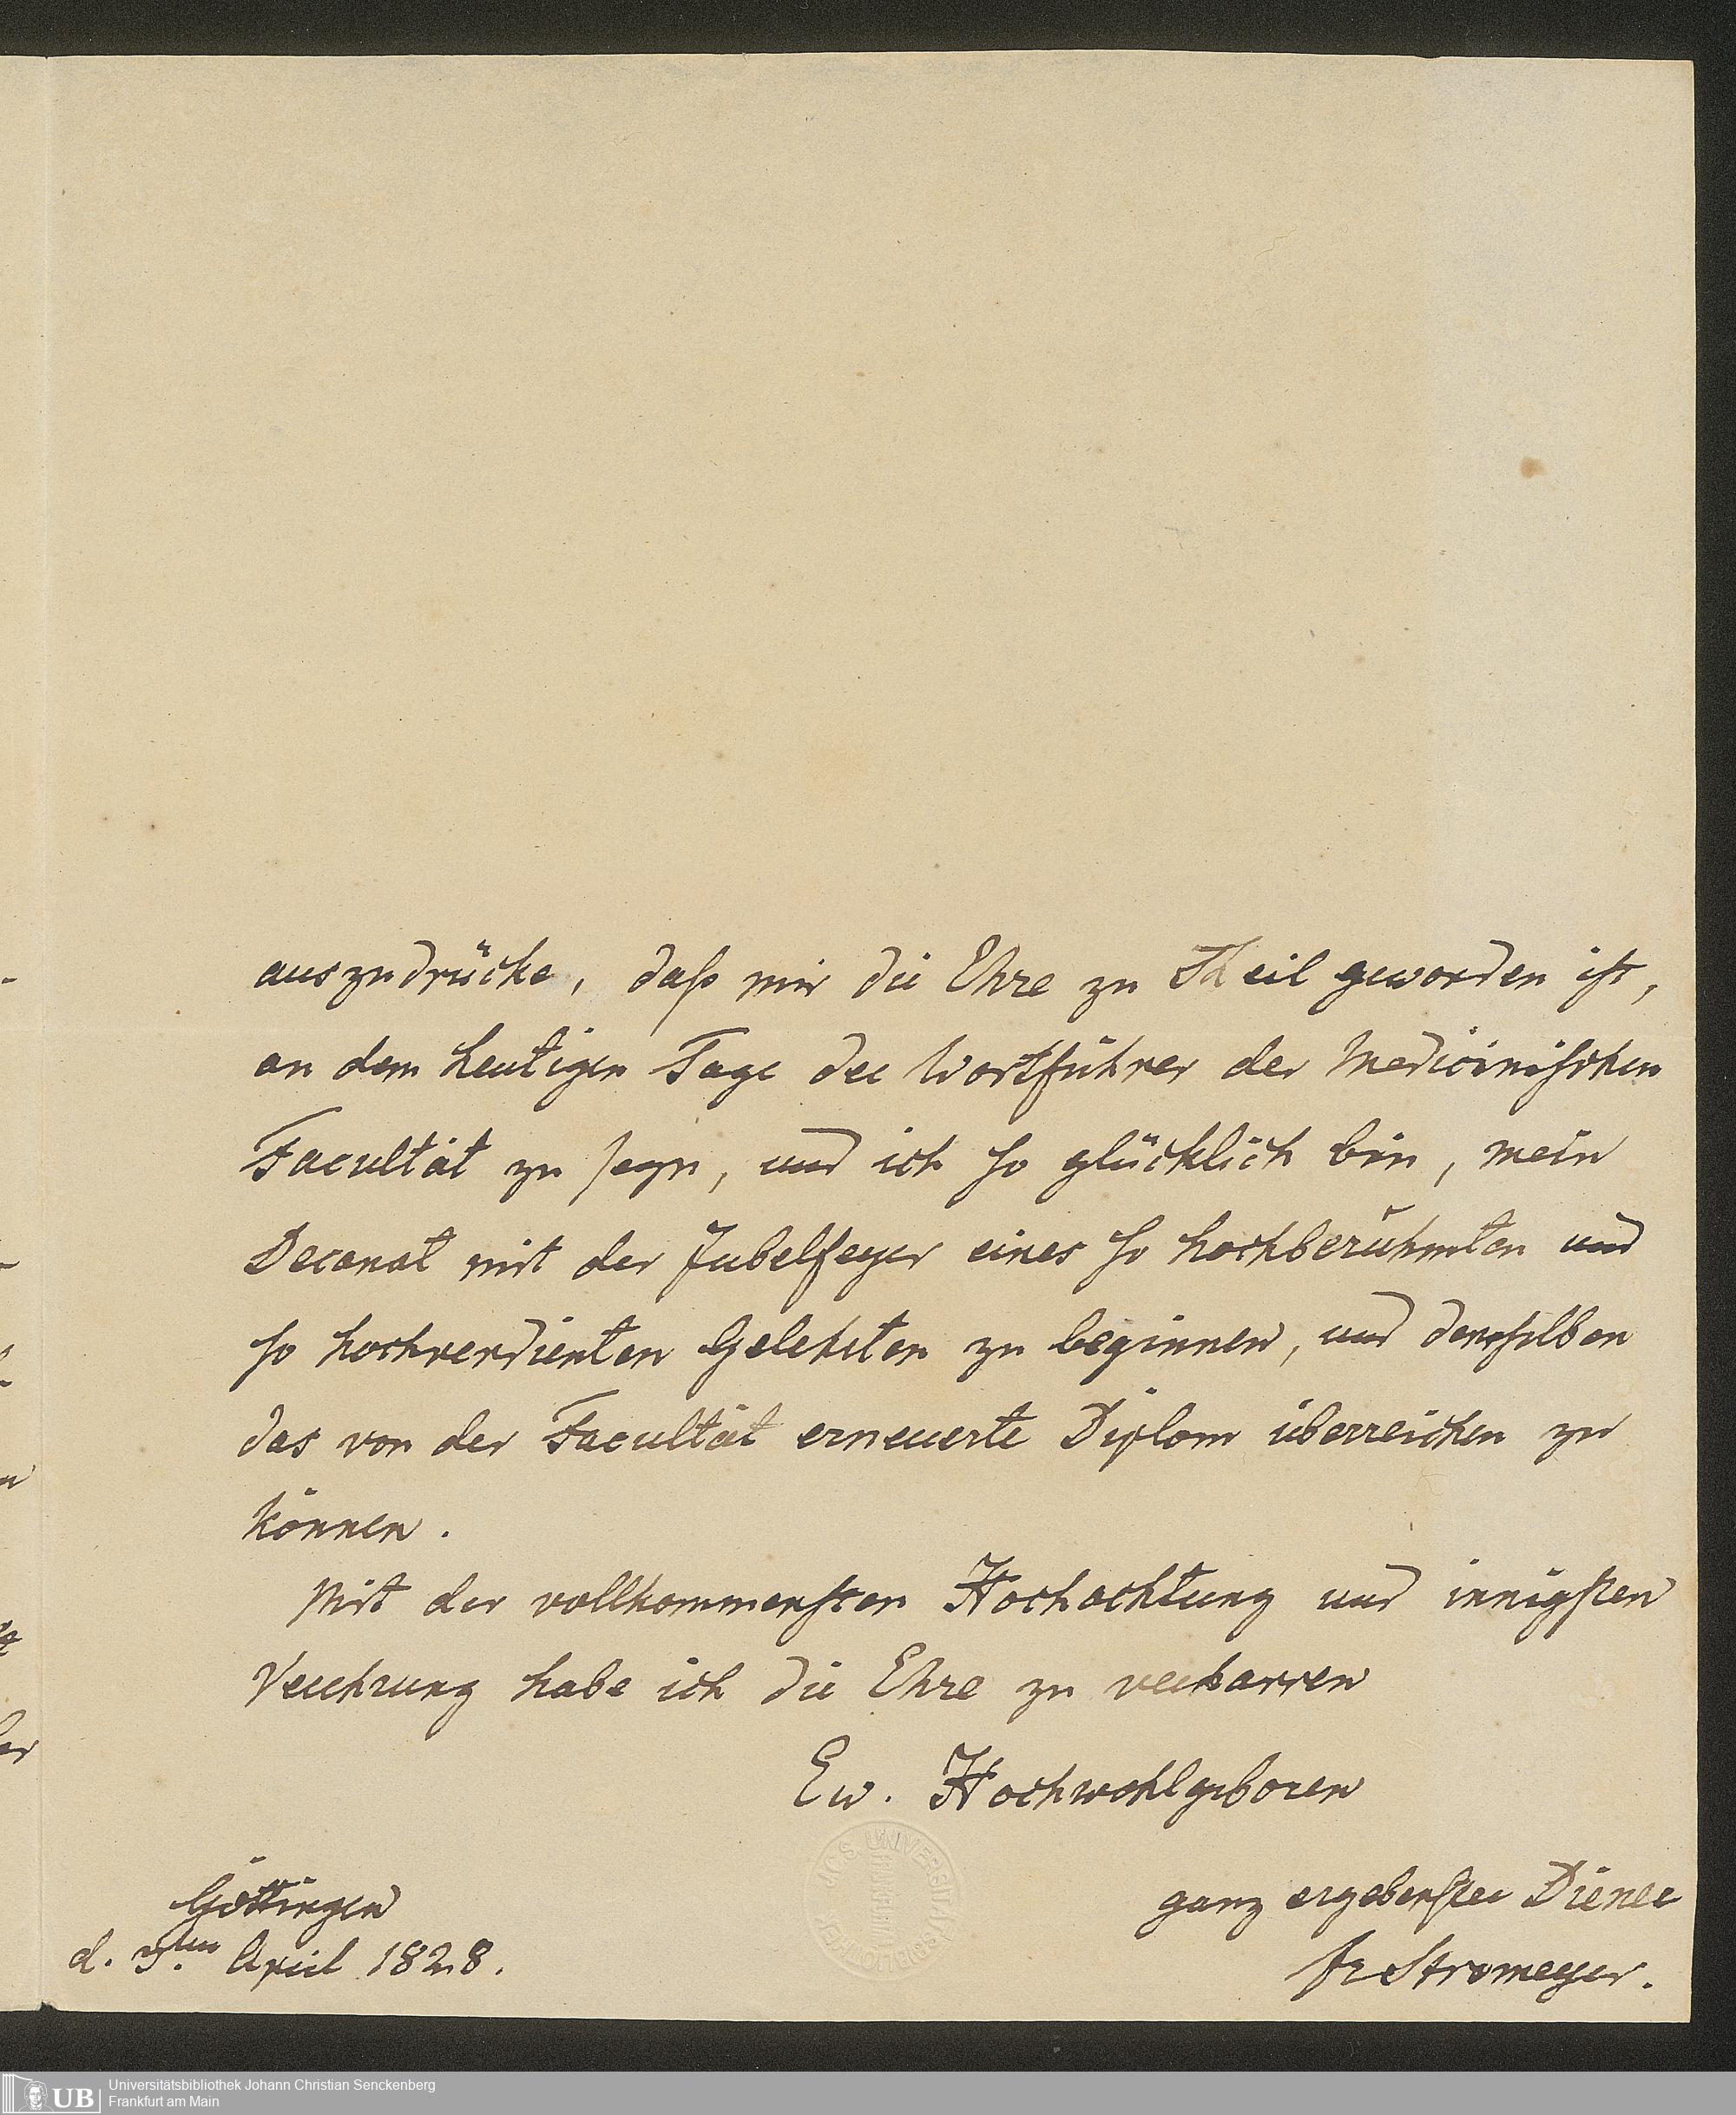 auszudrücke, daß mir die Ehre zu Theil geworden ist,
an dem heutigen Tage der Wortführer der Medicinischen
Facultät zu seyn, und ich so glücklich bin, mein
Decanat mit der Jubelfeyer eines so hochberühmten und
so hochverdienten Gelehrten zu beginnen, und demselben
das von der Facultät erneuerte Diplom überreichen zu
können.
Mit der vollkommensten Hochachtung und innigsten
Verehrung habe ich die Ehre zu verharren
Ew. Hochwohlgeboren
ganz ergebenster Diener
Fr Stromeyer.
Göttingen
d. 5.ten April 1828.
J.C.S. UNIVERSITÄTSBIBLIOTHEK
UB
Universitätsbibliothek Johann Christian Senckenberg
Frankfurt am Main